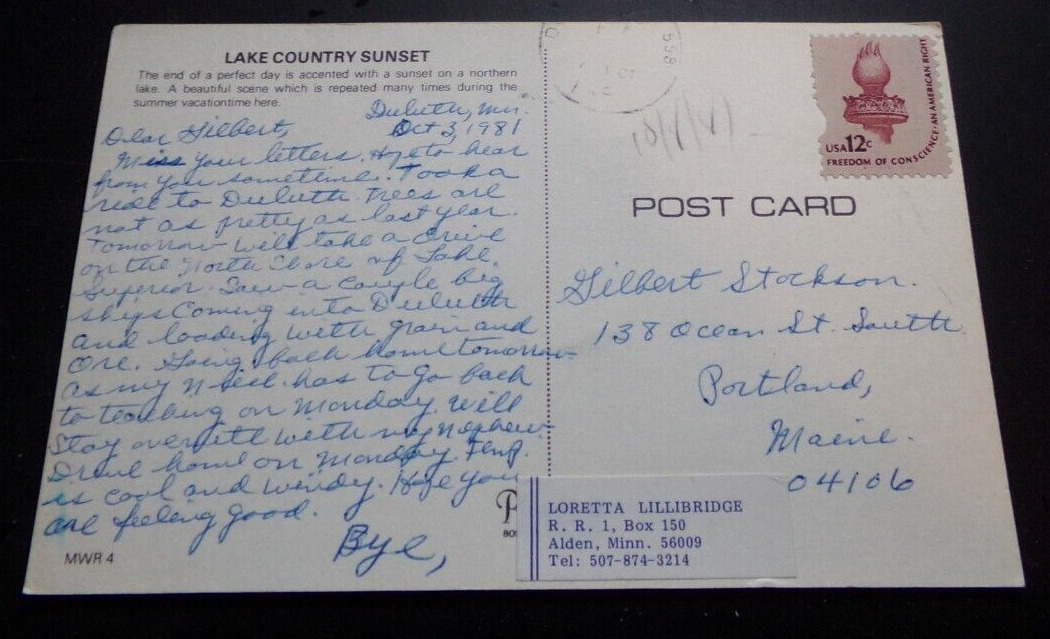 LAKE COUNTRY SUNSET
The end of a perfect day is accented with a sunset on a northern
lake. A beautiful scene which is repeated many times during the
summer vacationtime here.
Duluth, Mn.
Oct 3, 1981
Dear Gilbert,
Miss your letters. Hope to hear
from you sometime. Took a
ride to Duluth. Trees are
not as pretty as last year.
Tomorrow will take a drive
on the North Shore of Lake
Superior. Saw a couple big
ships coming into Duluth
and loading with grain and
Ore. Going back home tomorrow
as my niece has to go back
to teaching on Monday. Will
Stay over nite with my nephew
Drive home on Monday. Temp.
is cool and windy. Hope you
are feeling good.
Bye,
MWR 4
558
10/7/81
USA 12c
FREEDOM OF CONSCIENCE · AN AMERICAN RIGHT
POST CARD
Gilbert Stockson.
138 Ocean St. South
Portland,
Maine.
04106
LORETTA LILLIBRIDGE
R. R. 1, Box 150
Alden, Minn. 56009
Tel: 507-874-3214